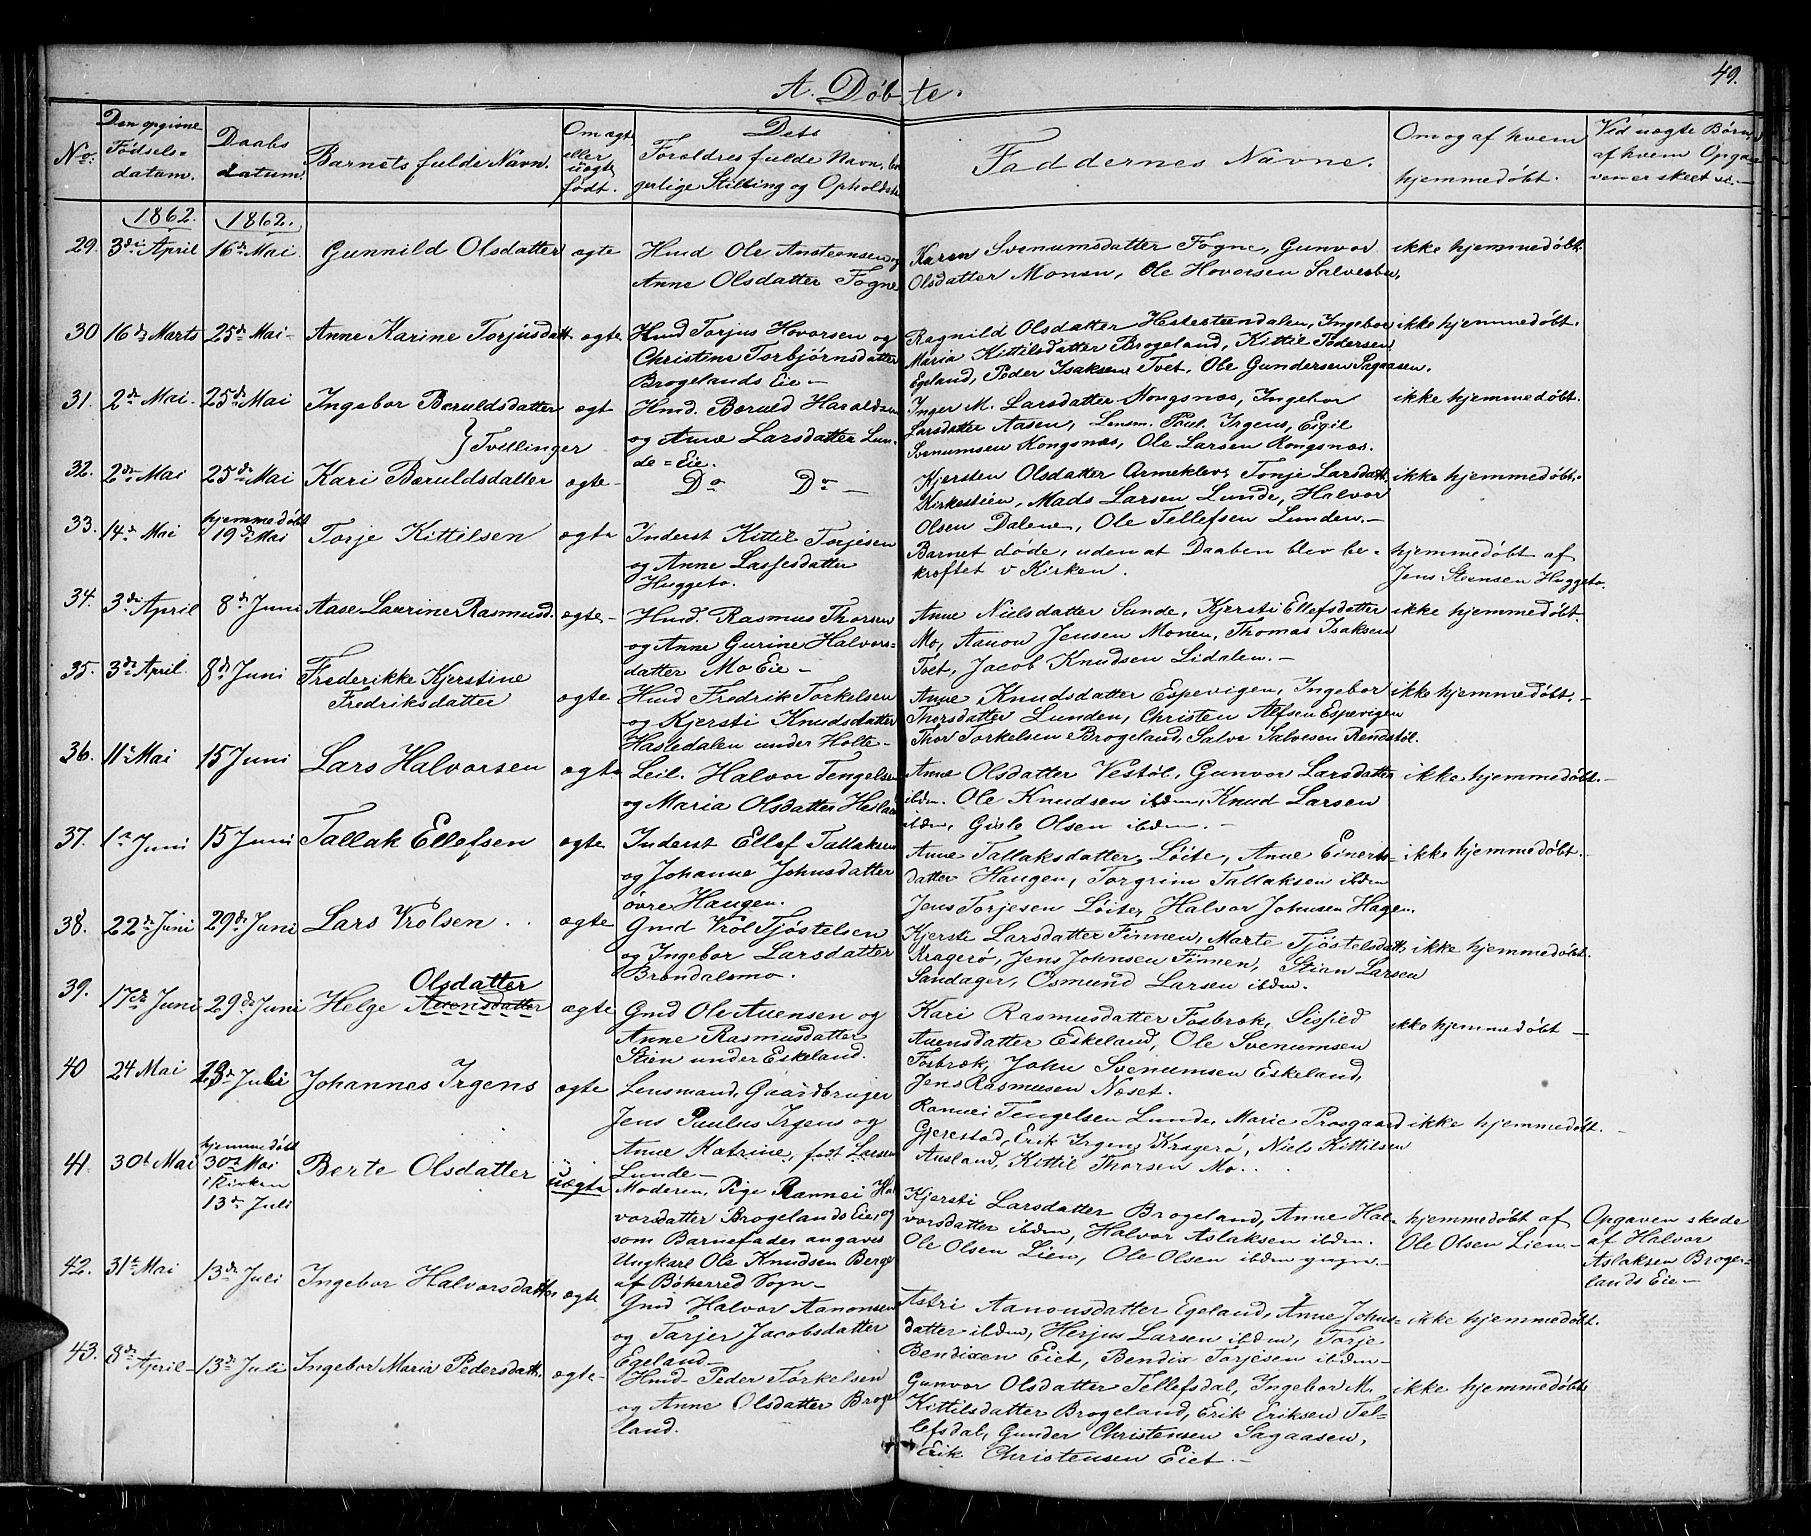 A. Døbte.
49.
No.
Den opgivne Fødsels-datum.
Daabs datum.
Barnets fulde Navn.
Om ægte eller uægte født.
Dets Forældres fulde Navn, borgerlige Stilling og Opholdst
Faddernes Navne.
Om og af hvem hjemmedøbt.
Ved uægte Børn, af hvem Opgaven er skeet
1862. 1862.
29. 3die April 16de Mai Gunnild Olsdatter ægte
Hmd Ole Anstensen og
Anne Olsdatter Fogne
Karen Svenumsdatter Fogne, Gunvor
Olsdatter Monen, Ole Hovorsen
ikke hjemmedøbt.
30 16de Marts 25de Mai Anne Karine Torjusdatt. ægte
Hmd Torjus Hovorsen og
Christine Torbjørnsdatter
Brogelands Eie
Ragnild Olsdatter Hesteteendalen, Ingebor
Maria Kittilsdatter Brogeland, Kittil Pedersen
Egeland, Peder Isaksen Tvet, Ole Gundersen Sagaasen.
ikke hjemmedøbt.
31. 2de Mai 25de Mai Ingebor Beruldsdatter ægte
Hmd. Beruld Haraldsen
og Anne Larsdatter Lun-
de=Eie.
Inger M. Larsdatter Kongsnæs, Ingebor
Larsdatter Aasen, Lensm. Paul Irgens, Eigil
Svenumsen Kongsnæs, Ole Larsen Kongsnæs.
ikke hjemmedøbt.
} Tvillinger
32. 2de Mai 25de Mai Kari Beruldsdatter ægte-
Do Do —
Kjersten Olsdatter Ormeklev, Tonje Larsdatt.
Kirkestien, Mads Larsen Lunde, Halvor
Olsen Dalene, Ole Tellefsen Lunden.-
ikke hjemmedøbt.
33. 14de Mai hjemmedøbt 19de Mai Torje Kittilsen ægte
Inderst Kittil Torjesen
og Anne Lassesdatter
Huggeto.
Barnet døde, uden at Daaben blev be-
kræftet v Kirken.
hjemmedøbt af
Jens Steensen Huggeto.
34. 3die April 8de Juni Aase Laurine Rasmusd. ægte-
Hmd. Rasmus Thorsen
og Anne Gurine Halvors=
datter Mo Eie -
Anne Nielsdatter Sunde, Kjersti Ellefsdatter
Mo, Aanon Jensen Monen, Thomas Isaksen
Tvet, Jacob Knudsen Lidalen.-
ikke hjemmedøbt.
35. 3die April 8de Juni Frederikke Kjerstine
Fredriksdatter ægte
Hmd Fredrik Torkelsen
og Kjersti Knudsdatter
Hasledalen under Holte-
Anne Knudsdatter Espevigen, Ingebor
Thorsdatter Lunden, Christen Alfsen Espevigen
Thor Torkelsen Brogeland, Salve Salvesen Rendstöl.
ikke hjemmedøbt.-
36. 11te Mai 15 Juni Lars Halvorsen ægte
Leil. Halvor Tengelsen
og Maria Olsdatter
Anne Olsdatter Vestøl, Gunvor Larsdatter
ibdm. Ole Knudsen ibdm, Knud Larsen
ibdm, Gisle Olsen ibdm. -
ikke hjemmedøbt.-
37. 1ste Juni 15 Juni Tallak Ellefsen ægte
Inderst Ellef Tallaksen
og Johanne Johnsdatter
øvre Haugen.
Anne Tallaksdatter Løite, Anne Einerts=
datter Haugen, Torgrim Tallaksen ibdm
Jens Torjesen Løite, Halvor Johnsen Hagen.
ikke hjemmedøbt.
38. 22de Juni 29de Juni Lars Vrolsen ægte
Gmd Vrol Tjøstelsen
og Ingebor Larsdatter
Brøndalsmo.
Kjersti Larsdatter Finnen, Marte Tjøstelsdatt.
Kragerø, Jens Johnsen Finnen, Stian Larsen
Sandager, Osmund Larsen ibdm.
ikke hjemmedøbt.
39. 17de Juni 29de Juni Helge Auensdatter Olsdatter ægte
Gmd Ole Auensen og
Anne Rasmusdatter
Stien under Eskeland.
Kari Rasmusdatter Fosbræk, Sissied
Auensdatter Eskeland, Ole Svenumsen
Fosbræk, John Svenumsen Eskeland,
Jens Rasmusen Næset.
ikke hjemmedøbt -
40 24 Mai 13de Juli Johannes Irgens ægte
Lensmand, Gaardbruger
Jens Paulus Irgens og
Anne Katrine, født Larsen
Lunde-
Rannei Tengelsen Lunde, Marie Prosgaard
Gjerestad, Erik Irgens Kragerø, Niels Kittilsen
Ausland, Kittil Thorsen Mo.
ikke hjemmedøbt.
41. 30te Mai hjemmedøbt 30te Mai i Kirken 13de Juli Berte Olsdatter uægte
Moderen, Pige Rannei Hal
vorsdatter Brogelands Eie, og
som Barnefader angaves
Ungkarl Ole Knudsen Berge
af Böherred Sogn-
Kjersti Larsdatter Brogeland, Anne Hal-
vorsdatter ibdm, Halvor Aslaksen ibdm.
Ole Olsen Lien, Ole Olsen ibdm yngre.-
hjemmedøbt af
Ole Olsen Lien.-
Opgaven skede
af Halvor
Aslaksen Broge-
lands Eie-
42. 31te Mai 13de Juli Ingebor Halvorsdatter ægte
Gmd Halvor Aanonsen
og Tarjer Jacobsdatter
Egeland-
Astri Aanonsdatter Egeland, Anne Johns-
datter ibdm, Herjus Larsen ibdm, Torje
Bendixen Eiet, Bendix Torjesen ibdm-
ikke hjemmedøbt.
43. 8de April- 13de Juli Ingebor Maria Pedersdatt. ægte-
Hmd Peder Torkelsen
og Anne Olsdatter Broge
land.
Gunvor Olsdatter Tellefsdal, Ingebor M.
Kittilsdatter Brogeland, Erik Eriksen Tel-
lefsdal, Gunder Christensen Sagaasen,
Erik Christensen Eiet.-
ikke hjemmedøbt